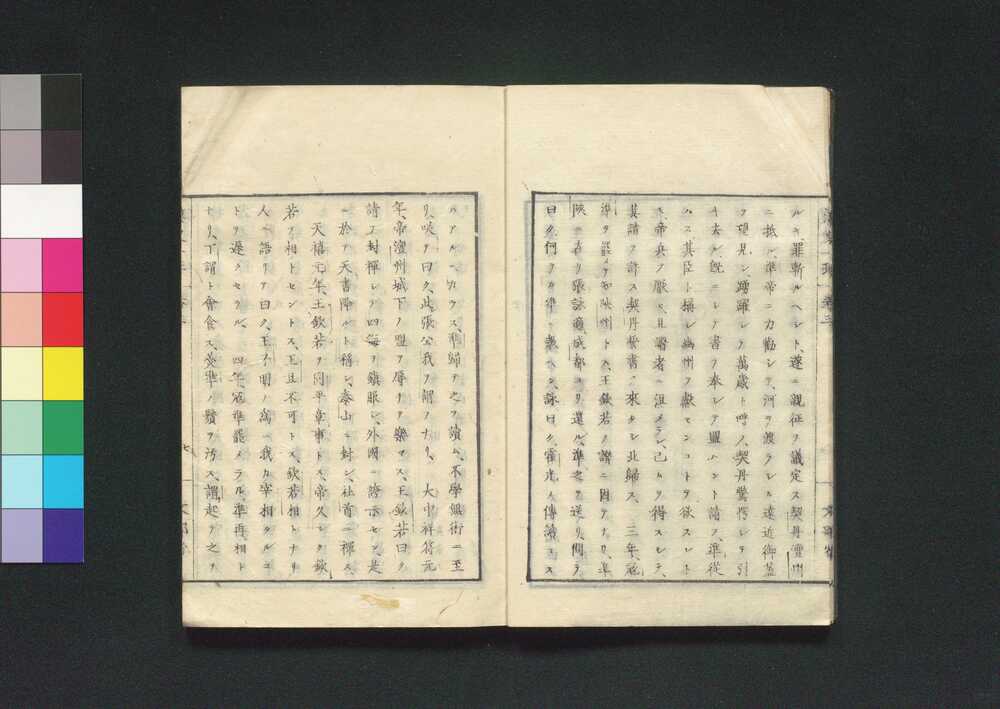 ルキ罪斬ルヘシト、遂ニ親征ヲ議定ス契丹澶州
ニ抵ル、準帝ニ力勸シテ、河ヲ渡ラシム遠近御蓋
ヲ望見シ、踴躍シテ萬歳ト呼ノ、契丹驚愕シテ引
キ去ル、既ニシテ書ヲ奉シテ盟ハント請フ、準從
ハス其臣ト稱シ幽州ヲ獻センコトヲ欲スレト
モ、帝兵ヲ厭ヒ且譖者ニ沮メラレ、已ムヲ得スシテ、
其請ヲ許ス契丹誓書ヲ來タシ北歸ス、 三年、冦
準ヲ罷メテ知陝州トス、王欽若ノ譖ニ因テナリ、準
陝ニ在リ張詠適成都ヨリ還ル、準之ヲ送リ、問テ
曰ク何ヲカ準ニ教ヘン、詠曰ク、霍光ノ傳讀マス
ハアルヘカラス、準歸テ之ヲ讀ム、不學無術ニ至
リ、咲テ曰ク、此張公我ヲ謂フナリ、 大中祥符元
年、帝澶州城下ノ盟ヲ辱リテ樂マス、王欽若曰ク
請フ封禪シテ四海ヲ鎭服シ、外國ニ誇示セン、是
ニ於テ天書降ルト稱シ、泰山ニ封シ、社首ニ禪ス、
天禧元年、王欽若ヲ同平章事トス、帝久シク欽
若ヲ相トセントス、王旦不可トス、欽若相トナリ
人ニ語リテ曰ク、王子明ノ爲ニ我カ宰相タルコ
トヲ遲クセラル、 四年、冦準罷メラル、準再相ト
ナリ、丁謂ト會食ス、羮準ノ鬚ヲ汚ス、謂起テ之ヲ